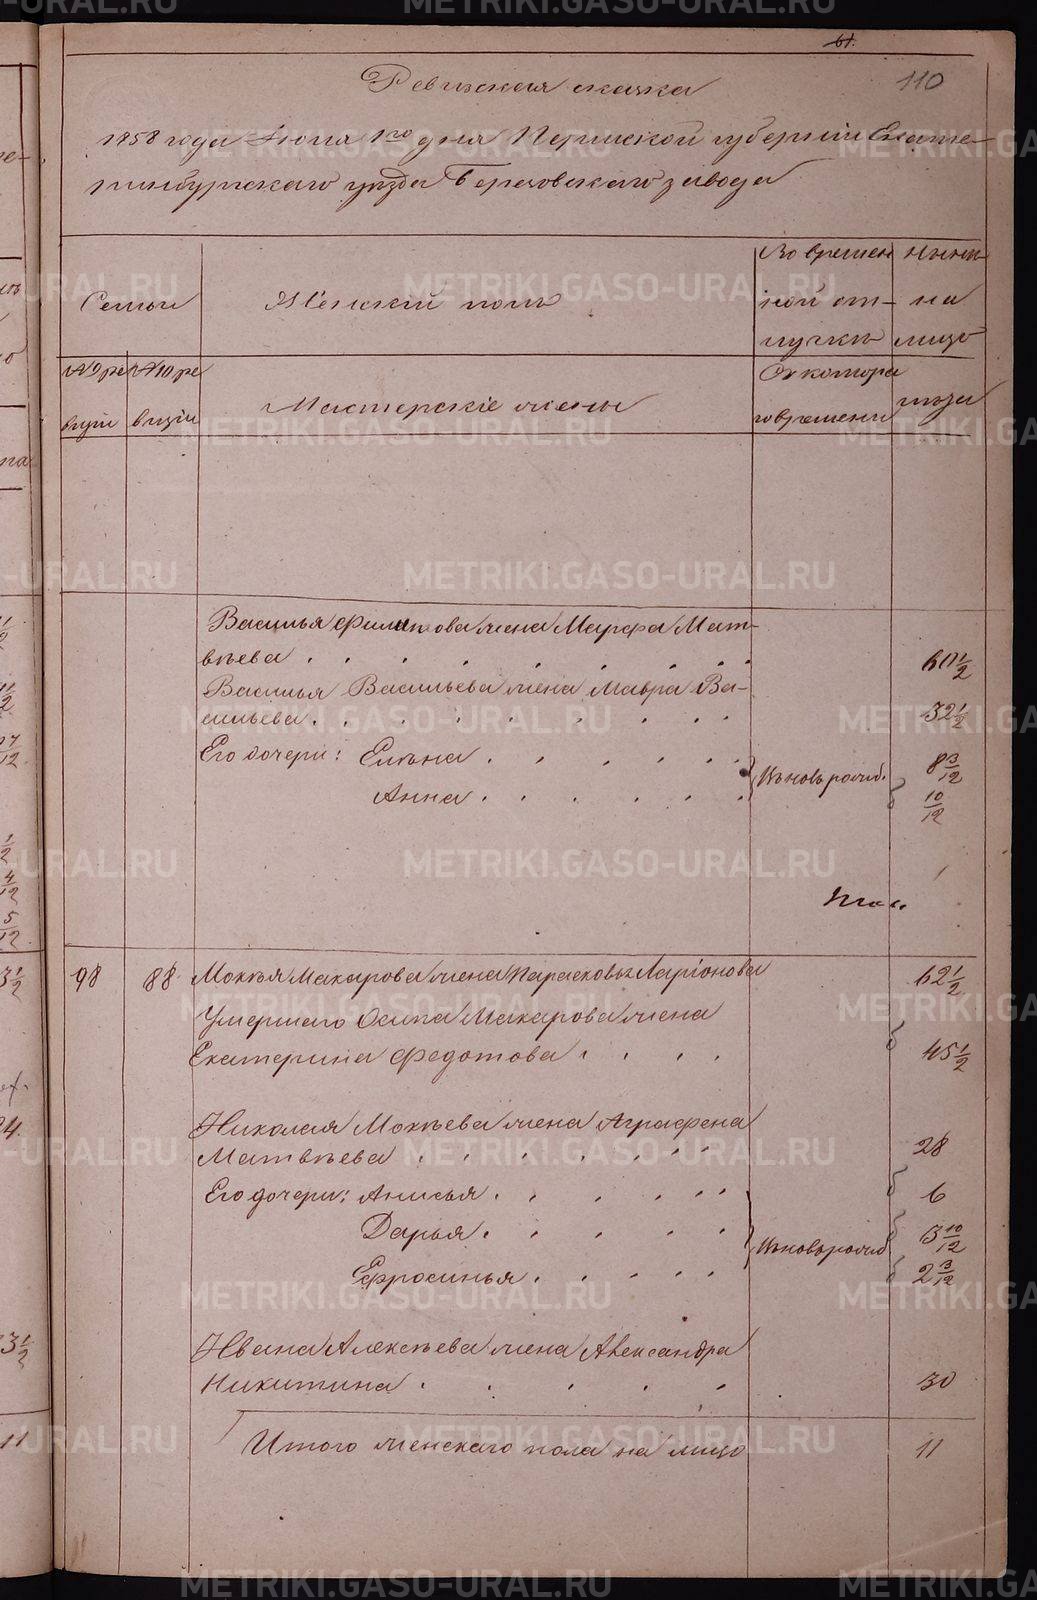 61.
110
Ревизская сказка
1858 года Июня 1го дня Пермской губернiи Екате-
ринбургскаго уѣзда Березовскаго завода
Семьи
Женскiй полъ
Во времен
ной от-
лучкѣ
нынѣ
на
лицо
№ 9 ре
визiи
№ 10 ре
визiи
Мастерскiе жены
Съ котора
го времени
лѣта
Василья Филипова жена Марфа Мат-
вѣева . . . . . . . . 60 1/2
Василья Васильева жена Мавра Ва-
сильева . . . . . . . . 32 1/2
Его дочери: Елѣна . . . . . . 8 3/12
Анна . . . . . . 10/12
вновьрожд.
98 88 Мокѣя Макарова жена Парасковья Ларiонова 62 1/2
Умершаго Осипа Макарова жена
Екатерина Федотова . . . . 45 1/2
Николая Мокѣева жена Аграфена
Матвѣева . . . . . . 28
Его дочери: Анисья . . . . . . 6
Дарья . . . . . 3 10/12
Ефросинья . . . . . 2 3/12
вновьрожд
Ивана Алексѣева жена Александра
Никитина . . . . . 30
Итого женскаго пола на лицо 11
METRIKI.GASO-URAL.RU